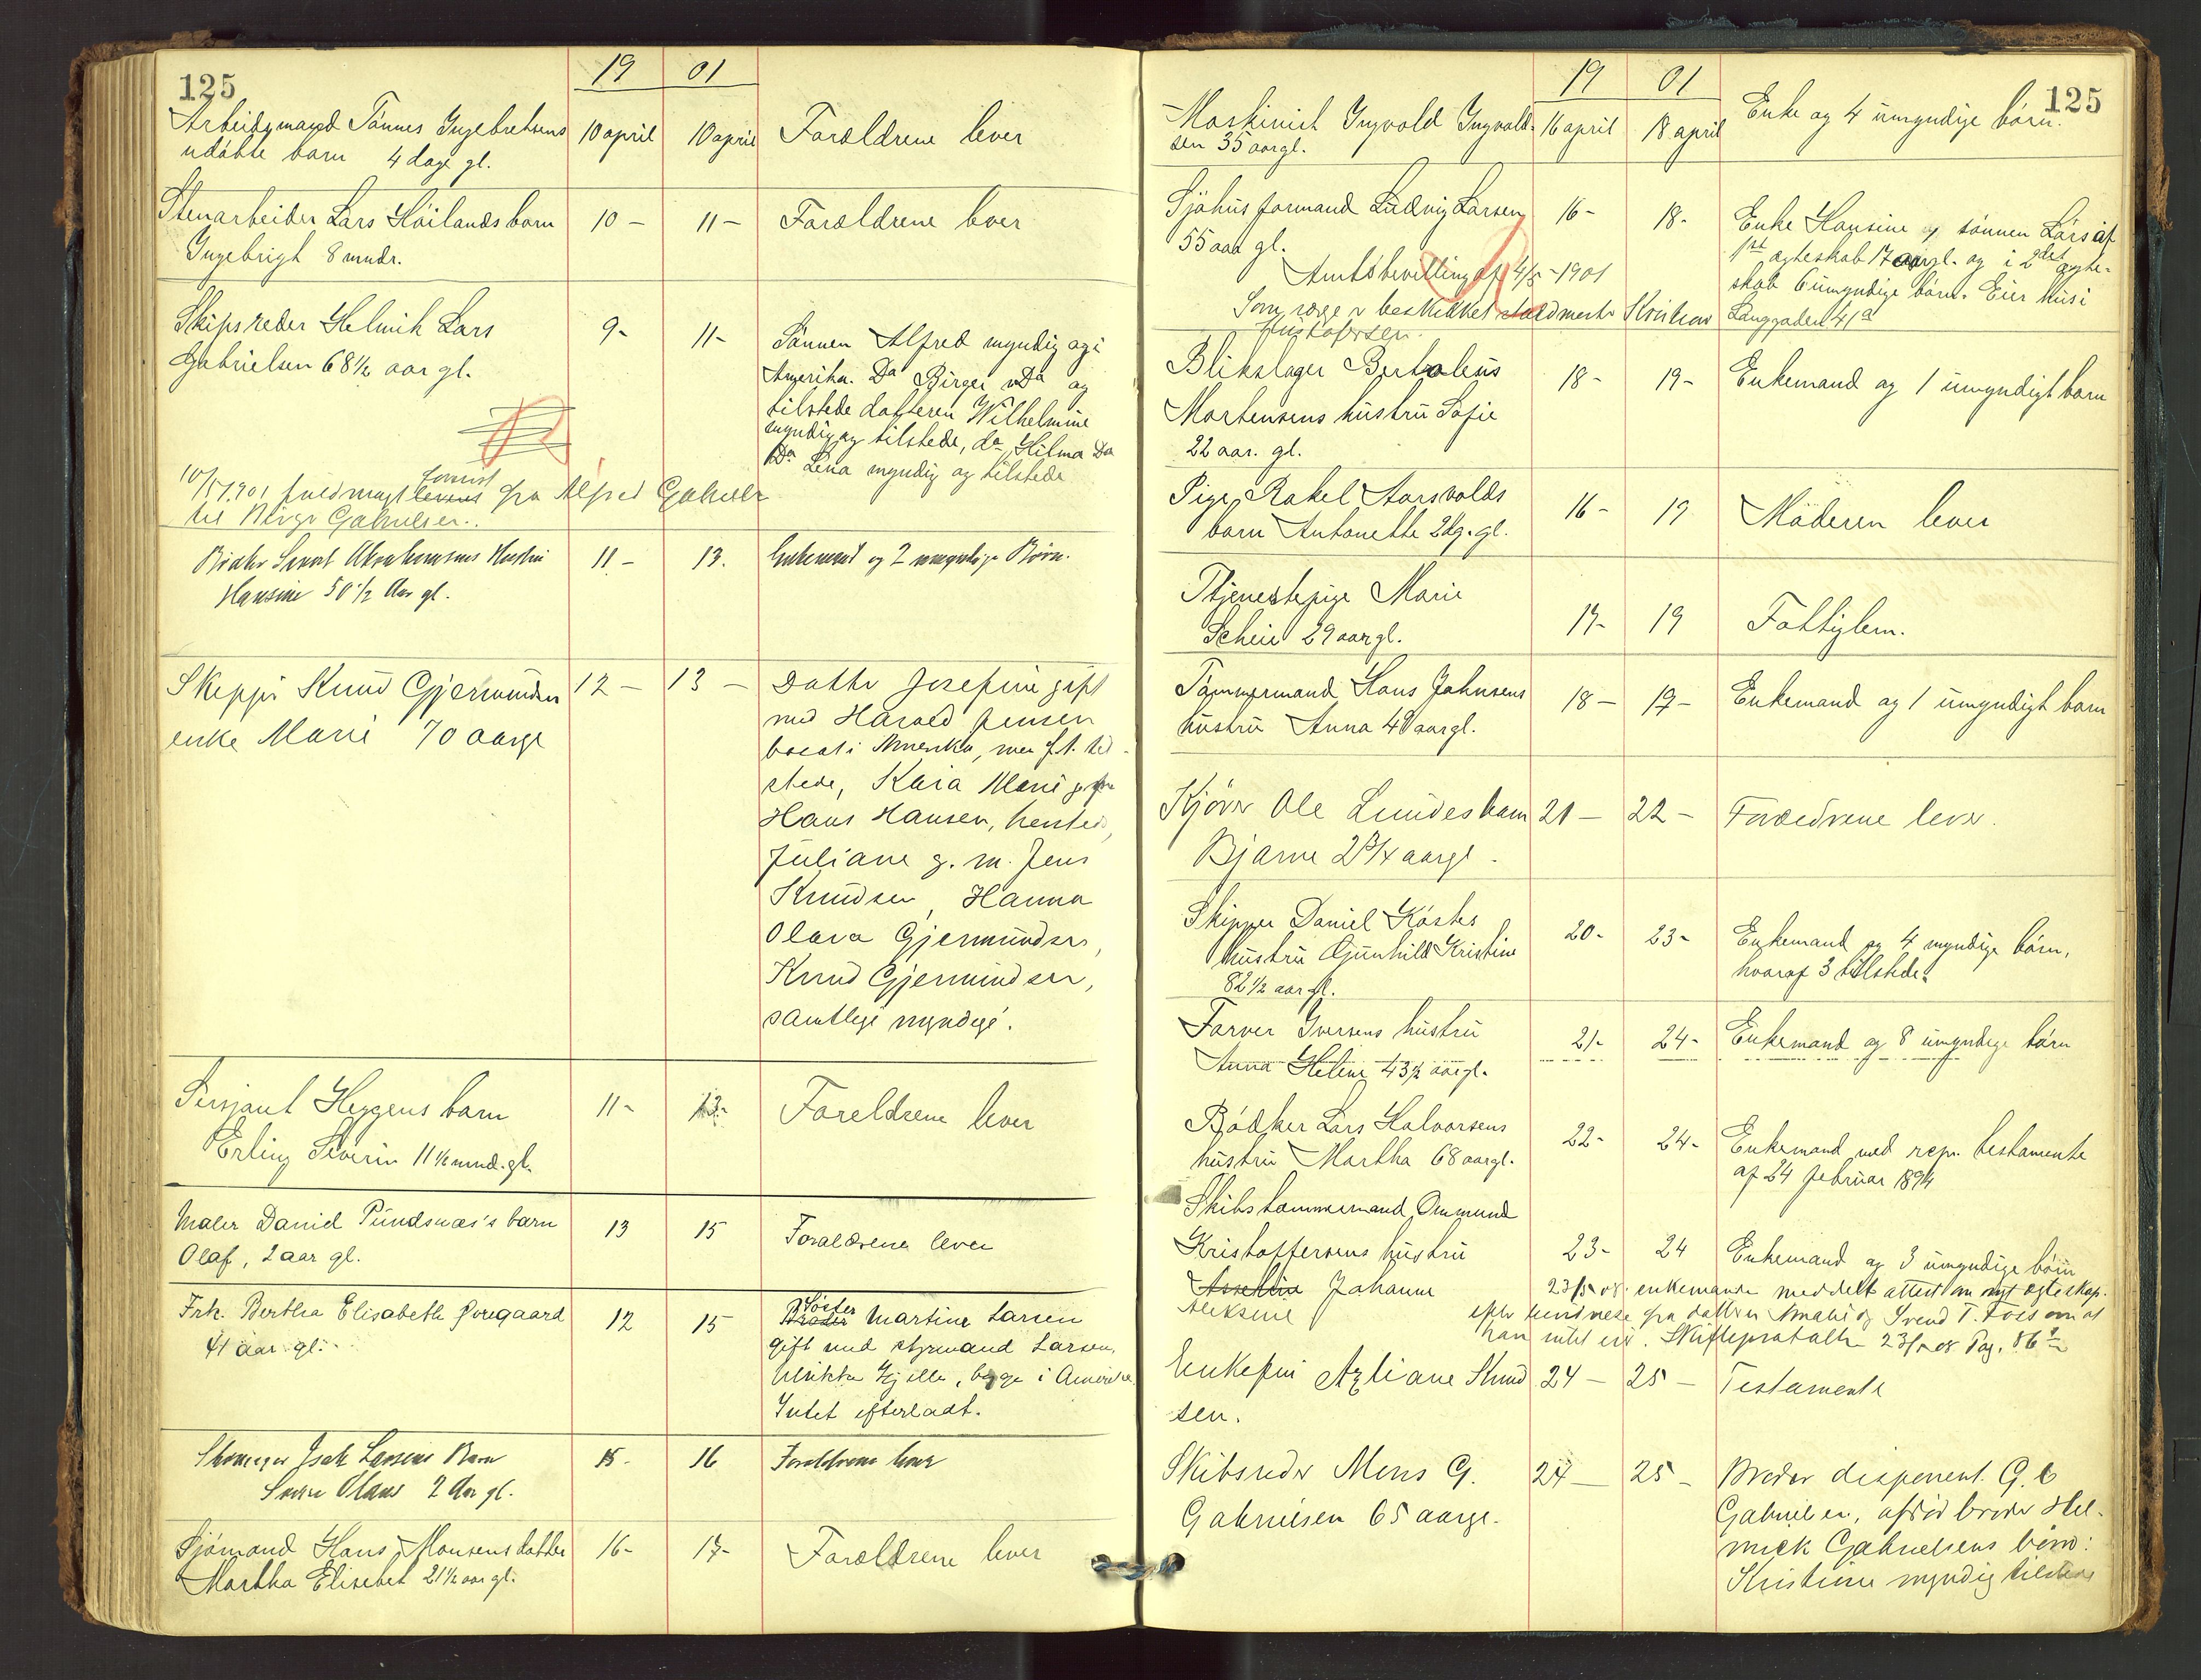 125
19 01
Arbeidsmand Tønnes Ingebretsens 10 april 10 april Forældrene lever
udøbte barn 4 dage gl.
Stenarbeider Lars Høilands barn 10 - 11 - Forældrene lever
Ingebrigt 8 mndr.
Skipsreder Helmik Lars 9 - 11 - Sønnen Alfred myndig og i
Gabrielsen 68½ aar gl.
Amerika. Da Birger Da og
tilstede datteren Wilhelmine
myndig og tilstede, da Hilma Da
Da Lena myndig og tilstede
10/5 1901 fuldmagt fra Alfred Gabriels
til Birger Gabrielsen.
Abrahamsens Hustru 11 - 13. Enkemand og 2 umyndige Børn.
Hansine 50½ Aar gl.
Skipper Knud Gjermundsen 12 - 13 - Datter Josefine gift
enke Marie 70 aargl
med Harald Jensen
bosat i Amerika, men f.t. til-
stede, Kaia Marie gift m
Hans Hansen,
Juliane g. m. Jens
Knudsen, Hanna
Olava Gjermundsen,
Knud Gjermundsen,
samtlige myndige.
Sersjant Heggens barn 11 - 13 - Foreldrene lever
Erling Severin 11½ mnd. gl.
Maler Daniel Pundsnæs's barn 13 15 Forældrene lever
Olaf, 2 aar gl.
Frk. Bertha Elisabeth Øvregaard 12 15 Søster
Broder Martine Larsen
41 aar gl.
gift med styrmand Larsen,
Ulrikka Gjelle, begge i Amerika
Intet efterladt.
Skomager Isak Larsens Barn 15 - 16 Forældrene lever
Olaus 2 Aar gl.
Sjømand Hans Monsens datter 16 - 17 - Forældrene lever
Martha Elisebet 21½ aar gl.
125
19 01
Maskinist Ingvald Ingvald- 16 april 18 april Enke og 4 umyndige børn.
sen 35 aar gl.
Sjøhusformand Ludvig Larsen 16 - 18 - Enke Hansine og sønnen Lars af
55 aar gl.
1st ægteskab 17 aar gl. og i 2det ægte-
Amtsbevilling af 4/5 - 1901
skab 6 umyndige børn. Eier hus i
Som værge er beskikket Kristian Langgaden 41a
Blikslager Bertoleus 18 - 19 - Enkemand og 1 umyndigt barn
Mortensens hustru Sofie
22 aar. gl.
Pige Rakel Aarsvolds 16 - 19 Moderen lever
barn Antonette 2 dg. gl.
Tjenestepige Marie 17 - 19 Fattiglem.
Scheie 29 aar gl.
Tømmermand Hans Johnsens 18 - 19 - Enkemand og 1 umyndigt barn
hustru Anna 40 aar gl.
Kjører Ole Lundes barn 21 - 22 - Forældrene lever.
Bjarne 2 3/4 aargl.
Skipper Daniel Køsters 20 - 23 - Enkemand og 4 myndige børn,
hustru Gunhild Kristine
hvoraf 3 tilstede.
82½ aar gl.
Farver Iversens hustru 21 - 24 - Enkemand og 8 umyndige børn
Anna Heline 43½ aar gl.
Bødker Lars Halvorsens 22 - 24 - Enkemand med repr. testamente
hustru Martha 68 aar gl.
af 24 februar 1894
Skibstømmermand Ommund
Kristoffersens hustru 23 - 24 Enkemand og 3 umyndige børn
Johanne
Aleksine
23/5 08. enkemanden meddelt attest om nyt ægteskap.
efter fra datteren Amalie og Svend T. Foss om at
han intet eier. Skifteprotokoll 23/5 08 Pag. 86
Enkefru Axliane Knud 24 - 25 - Testamente
sen.
Skibsreder Mons G. 24 - 25 - Broder disponent G. 
Gabrielsen 65 aargl.
Gabrielsen, afdød broder Hel-
mick Gabrielsens børn:
Kristine myndig tilstede